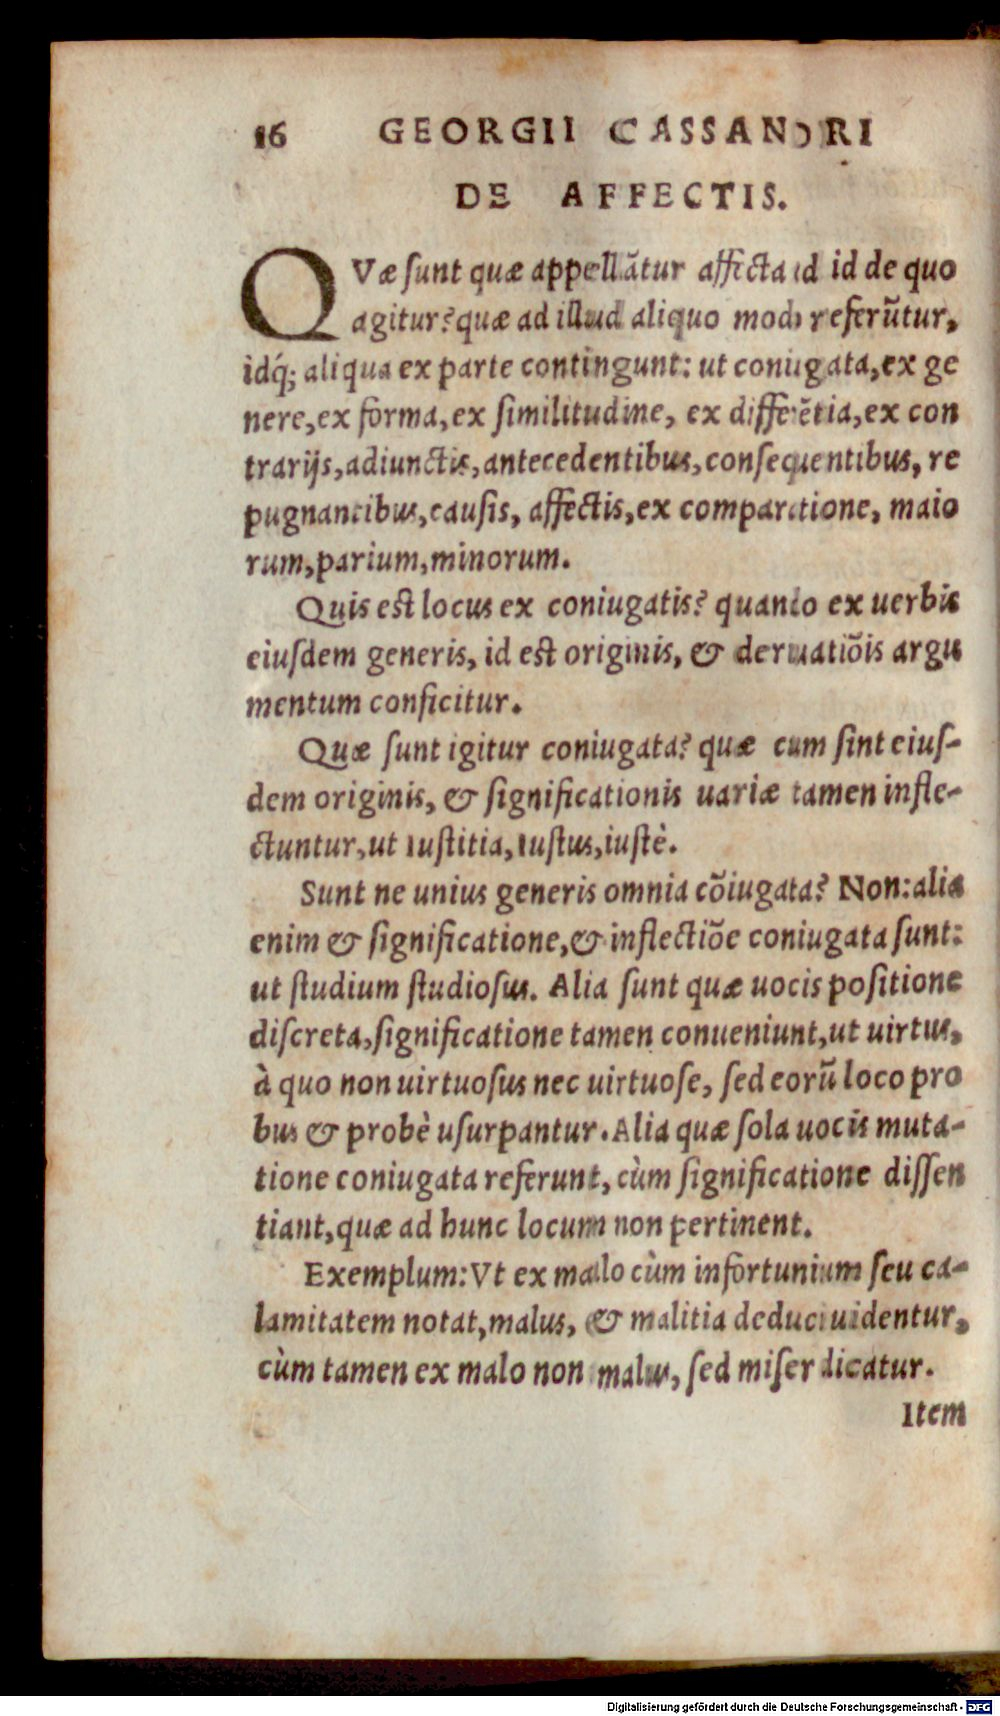 16 GEORGII CASSANDRI
DE AFFECTIS.
QVæ ſunt quæ appellãtur affecta ad id de quo
agitur? quæ ad illud aliquo modo referũtur,
idq́; aliqua ex parte contingunt: ut coniugata, ex ge
nere, ex forma, ex ſimilitudine, ex differẽtia, ex con
trarijs, adiunctis, antecedentibus, conſequentibus, re
pugnantibus, cauſis, affectis, ex comparatione, maio
rum, parium, minorum.
Quis est locus ex coniugatis? quando ex uerbis
eiuſdem generis, id est originis, & deriuatiõis argu
mentum conficitur.
Quæ ſunt igitur coniugata? quæ cum ſint eiuſ-
dem originis, & ſignificationis uariæ tamen infle-
ctuntur, ut Iuſtitia, Iuſtus, iuſtè.
Sunt ne unius generis omnia cõiugata? Non: alia
enim & ſignificatione, & inflectiõe coniugata ſunt:
ut ſtudium ſtudioſus. Alia ſunt quæ uocis poſitione
diſcreta, ſignificatione tamen conueniunt, ut uirtus,
à quo non uirtuoſus nec uirtuoſe, ſed eorũ loco pro
bus & probè uſurpantur. Alia quæ ſola uocis muta-
tione coniugata referunt, cùm ſignificatione diſſen
tiant, quæ ad hunc locum non pertinent.
Exemplum: Vt ex malo cùm infortunium ſeu ca-
lamitatem notat, malus, & malitia deduci uidentur,
cùm tamen ex malo non malus, ſed miſer dicatur.
Item
Digitalisierung gefördert durch die Deutsche Forschungsgemeinschaft - DFG